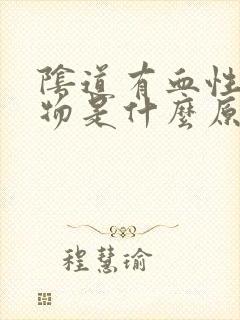 陰道有血性
物是什麼原
程慧瑜